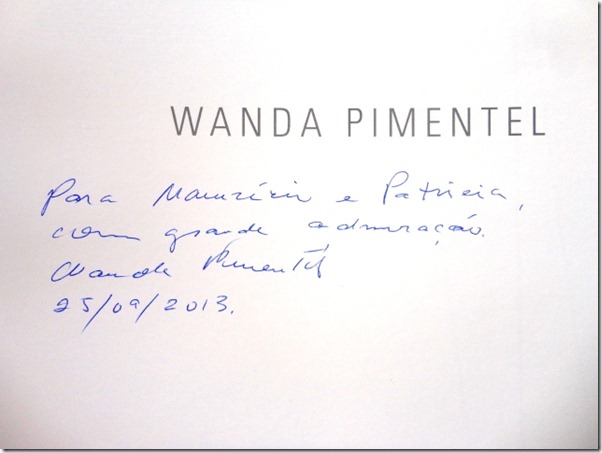 WANDA PIMENTEL
Para Maurício e Patrícia,
com grande admiração.
Wanda Pimentel
25/09/2013.